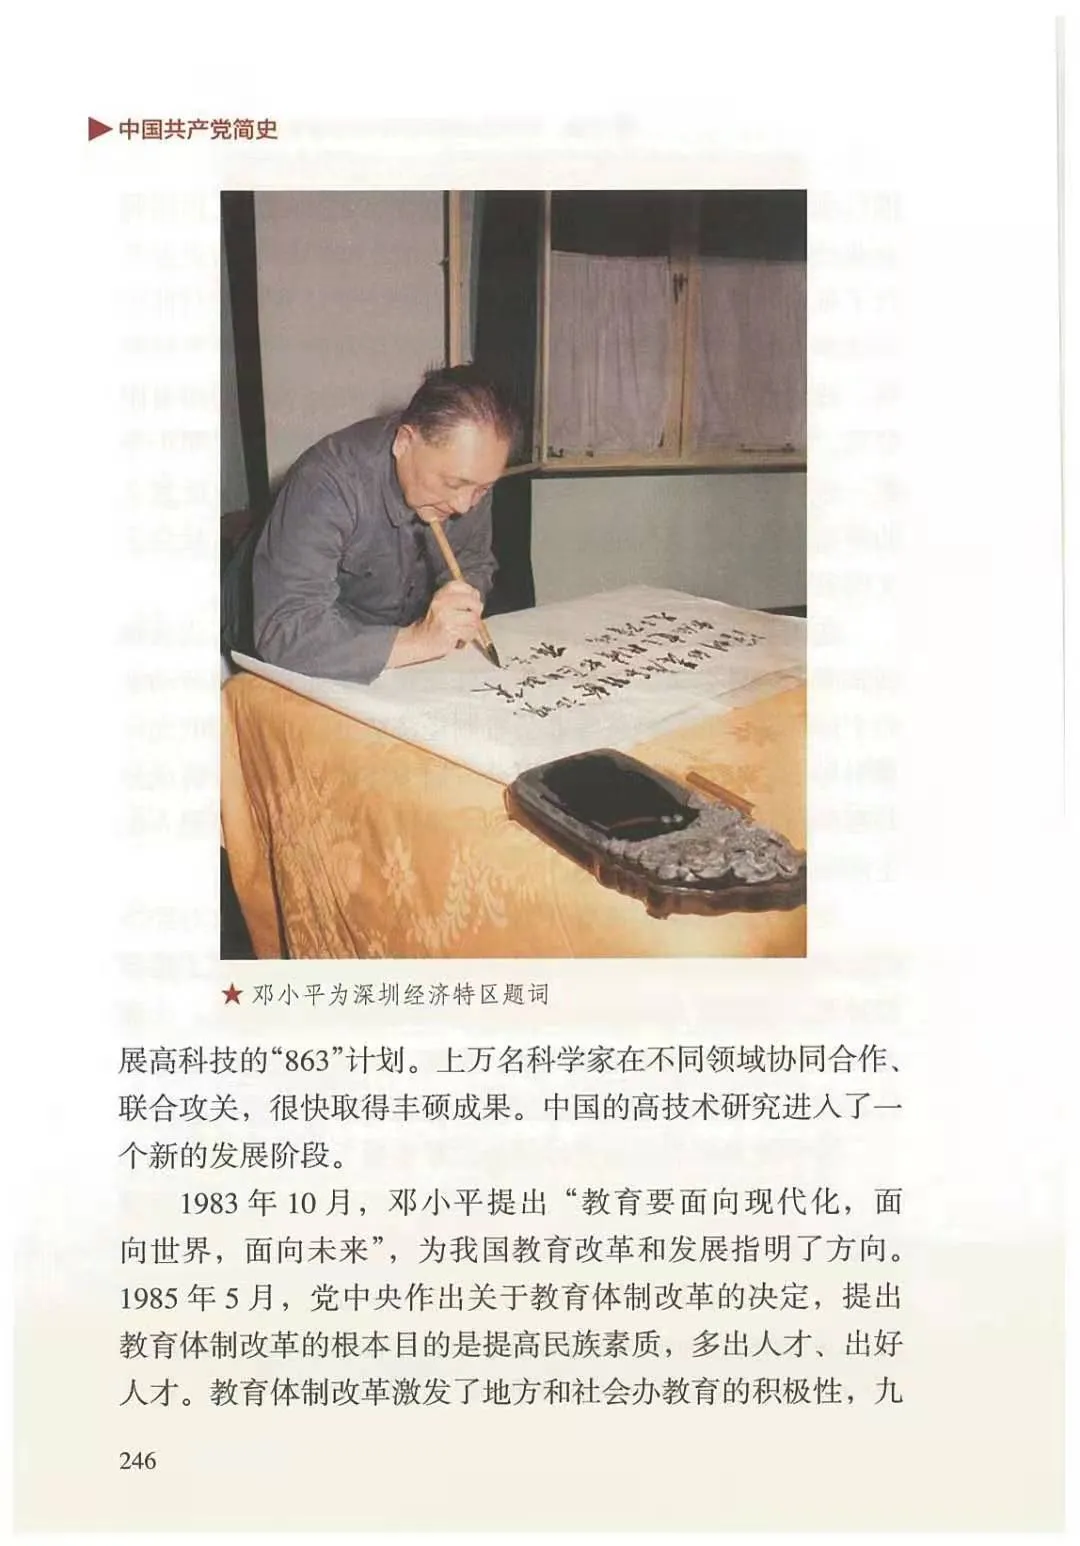 中国共产党简史
★ 邓小平为深圳经济特区题词
展高科技的“863”计划。上万名科学家在不同领域协同合作、
联合攻关，很快取得丰硕成果。中国的高技术研究进入了一
个新的发展阶段。
1983 年 10 月，邓小平提出“教育要面向现代化，面
向世界，面向未来”，为我国教育改革和发展指明了方向。
1985 年 5 月，党中央作出关于教育体制改革的决定，提出
教育体制改革的根本目的是提高民族素质，多出人才、出好
人才。教育体制改革激发了地方和社会办教育的积极性，九
246